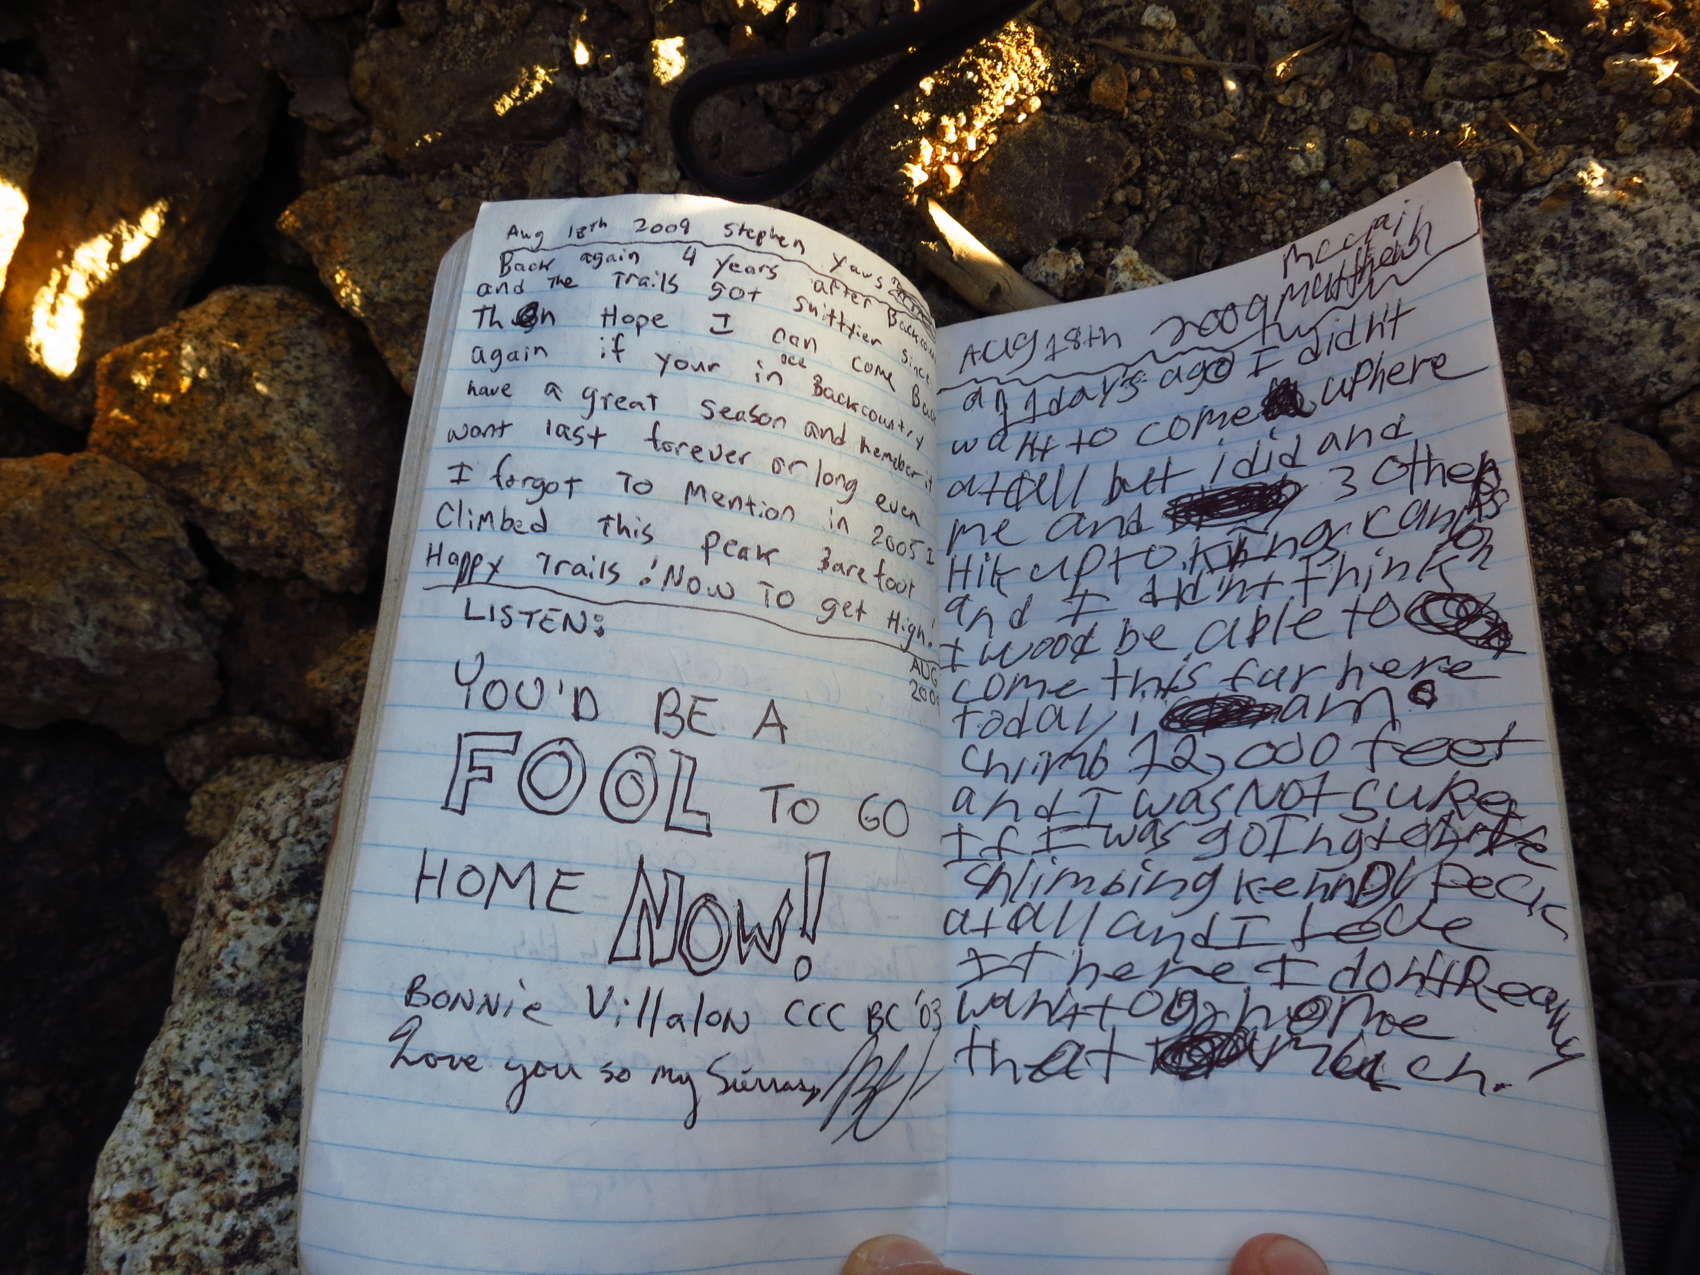 Aug 18th 2009 Stephen
Back again 4 years after
and The Trails got shittyier since
Then Hope I can come Back
again if your in Backcountry
have a great season and remeber it
want last forever or long even
I forgot To Mention in 2005 I
Climbed This peak Barefoot
Happy Trails! Now To get High!
LISTEN:
AUG
YOU'D BE A
FOOL TO GO
HOME NOW!
BONNie VillaloN CCC BC '03
Love you so my Sierras,
Matthew
AUG 18th 2009
days ago I didn't
want to come uphere
at all but i did and
me and 3 others
Hik up to kings canyon
and I didn't think
I wood be able to
come this far here
today i am
chlimb 12,000 feet
and I was Not sure
If I was going to be
chlimbing KennDy Peack
at all and I Love
It here I don't Realy
want to go home
that much.